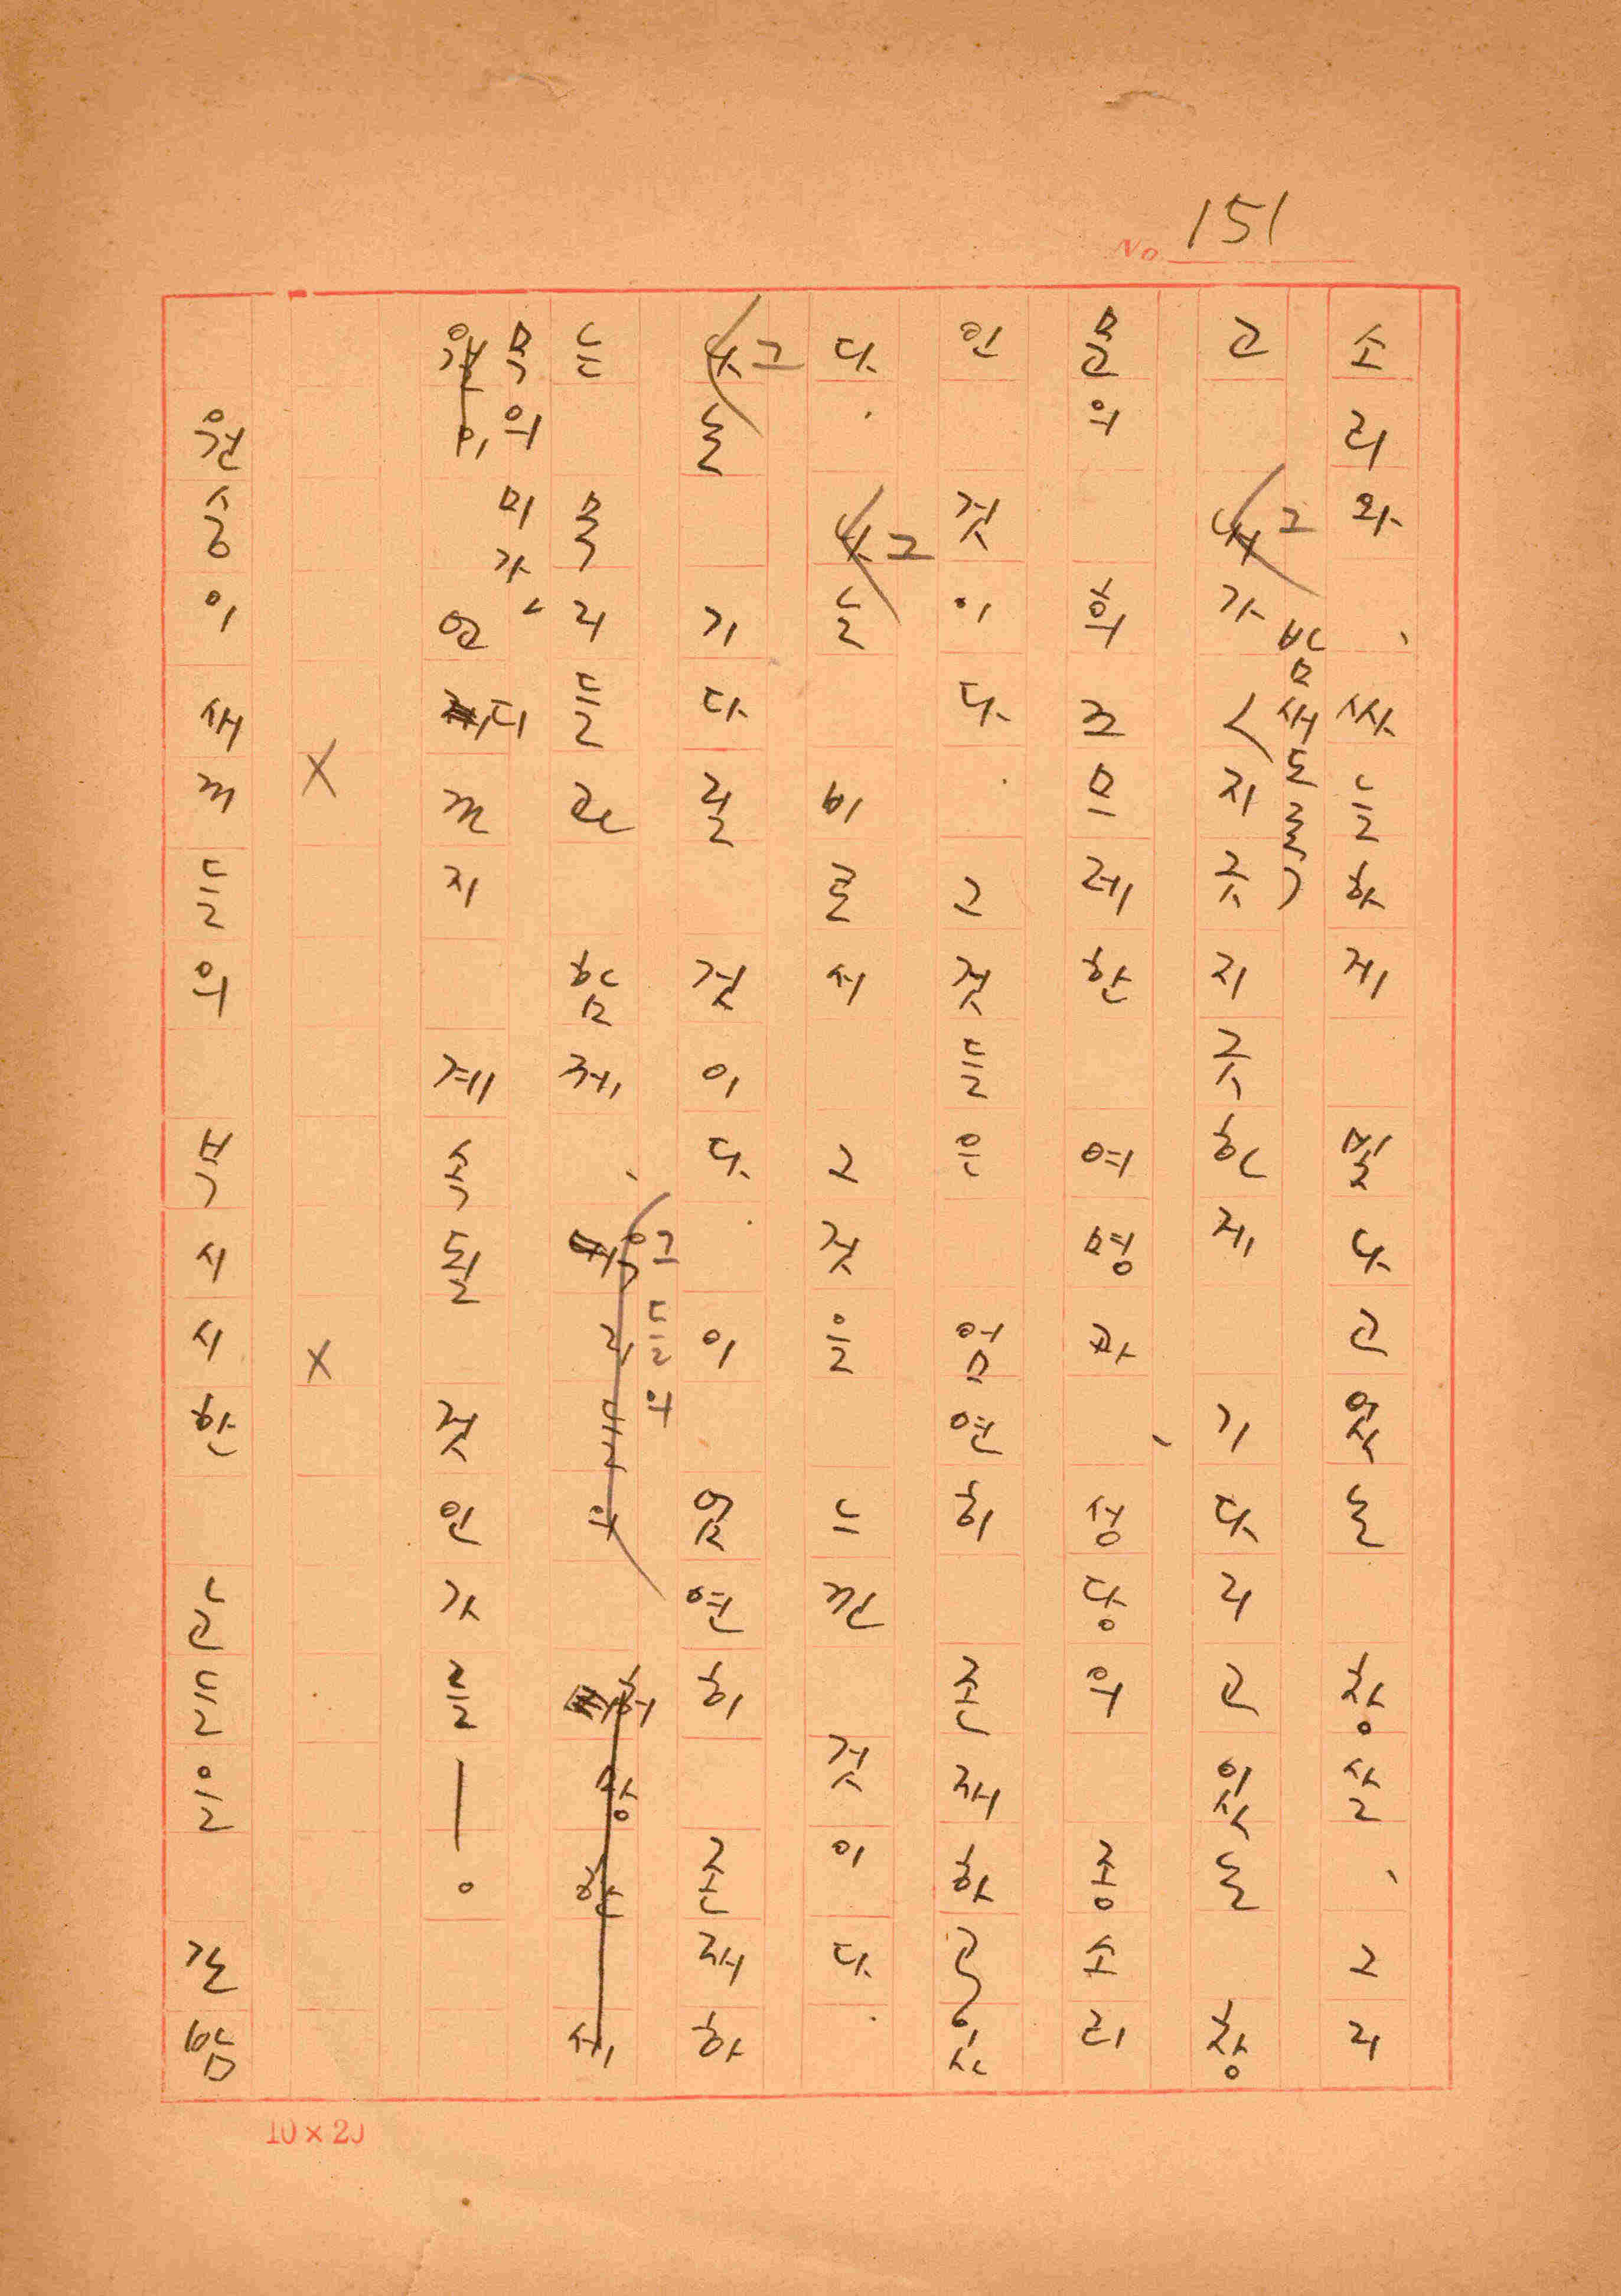 No 151
소리와、싸늘하게 빛나고 있는 창살、그리
고 그가 (밤새도록) 지긋지긋하게 기다리고 있는 창
문의 희끄므레한 여명과、성당의 종소리
인 것이다. 그것들은 엄연히 존재하고 있
다. 그는 비로서 그것을 느낀 것이다.
그는 기다릴 것이다. 이 엄연히 존재하
는 무리들과 함께、그들의 허망한 세
무의미가、언제까지 계속될 것인가를—。
X X
원숭이 새끼들의 부시시한 눈들은 간밤
10×20